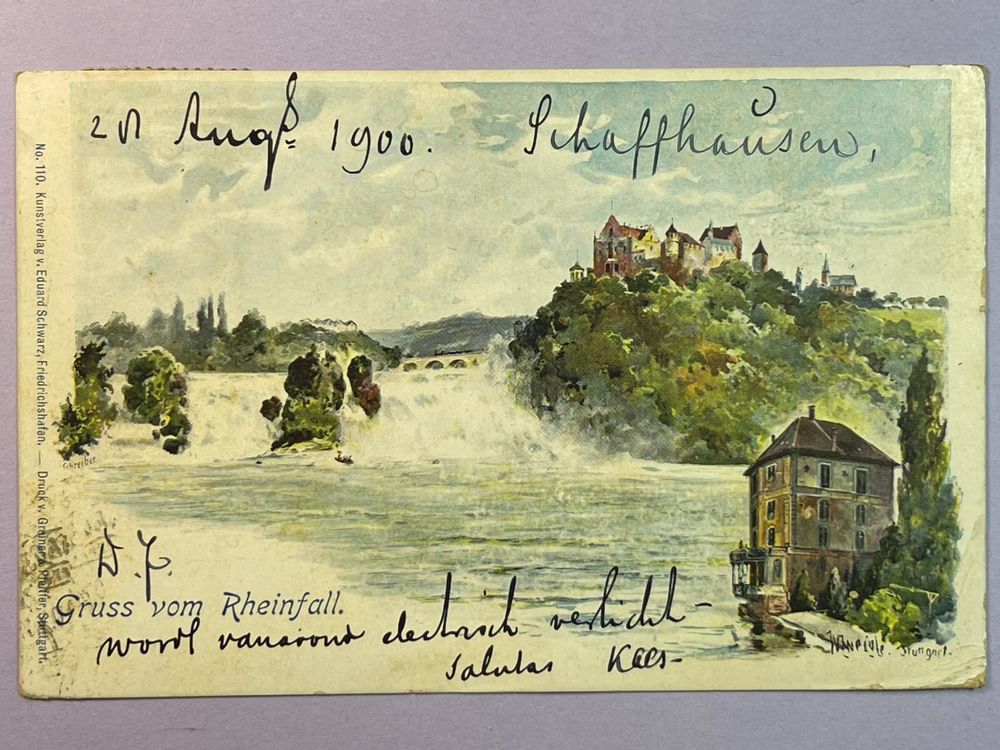 Augs 1900. Schaffhausen,
No. 110. Kunstverlag v. Eduard Schwarz, Friedrichshafen. — Druck v. Greiner & Pfeiffer, Stuttgart.
Schreiber.
Gruss vom Rheinfall.
wordt vanavond electrisch verlicht -
Salutas Kees -
Stuttgart.